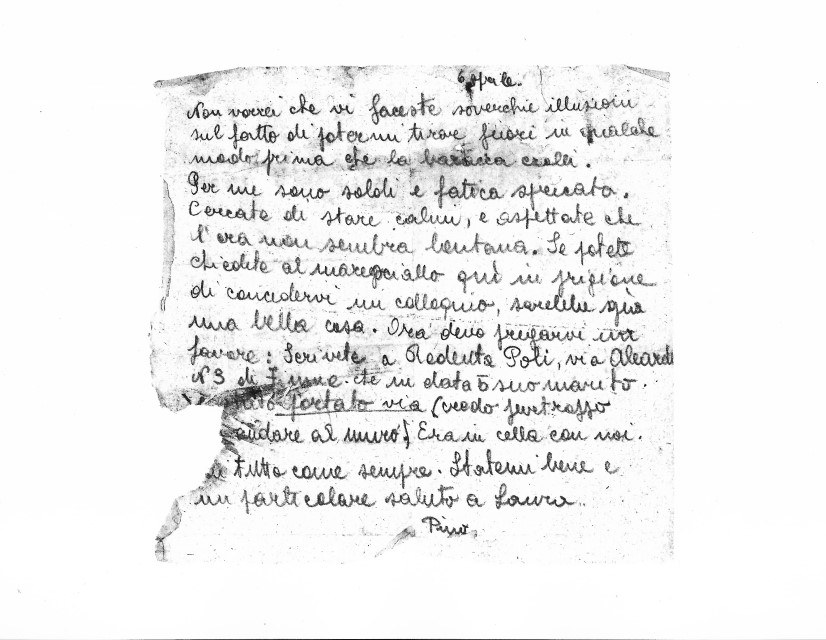 6 aprile.
Non vorrei che vi faceste soverchie illusioni
sul fatto di potermi tirare fuori in qualche
modo prima che la baracca crolli.
Per me sono soldi e fatica sprecata.
Cercate di stare calmi, e aspettate che
l'ora non sembra lontana. Se potete
chiedete al maresciallo quì in prigione
di concedervi un colloquio, sarebbe già
una bella cosa. Ora devo pregarvi un
favore: Scrivete a Redenta Poli, via Aleardi
N° 3 di che in data 5 suo marito
portato via (credo purtroppo
andare al muro) Era in cella con noi.
tutto come sempre. Statemi bene e
un particolare saluto a Laura.
Pino.